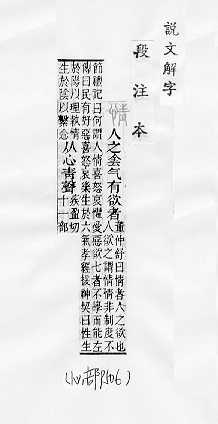 説文解字
段注本
情
人之侌气有欲者
董仲舒曰情者人之欲也
人欲之謂情情非制度不
節禮記曰何謂人情喜怒哀懼愛惡欲七者不學而能左
傳曰民有好惡喜怒哀樂生於六氣孝經援神契曰性生
於陽以理執情
生於陰以繫念
从心青聲
疾盈切
十一部
(心部506)